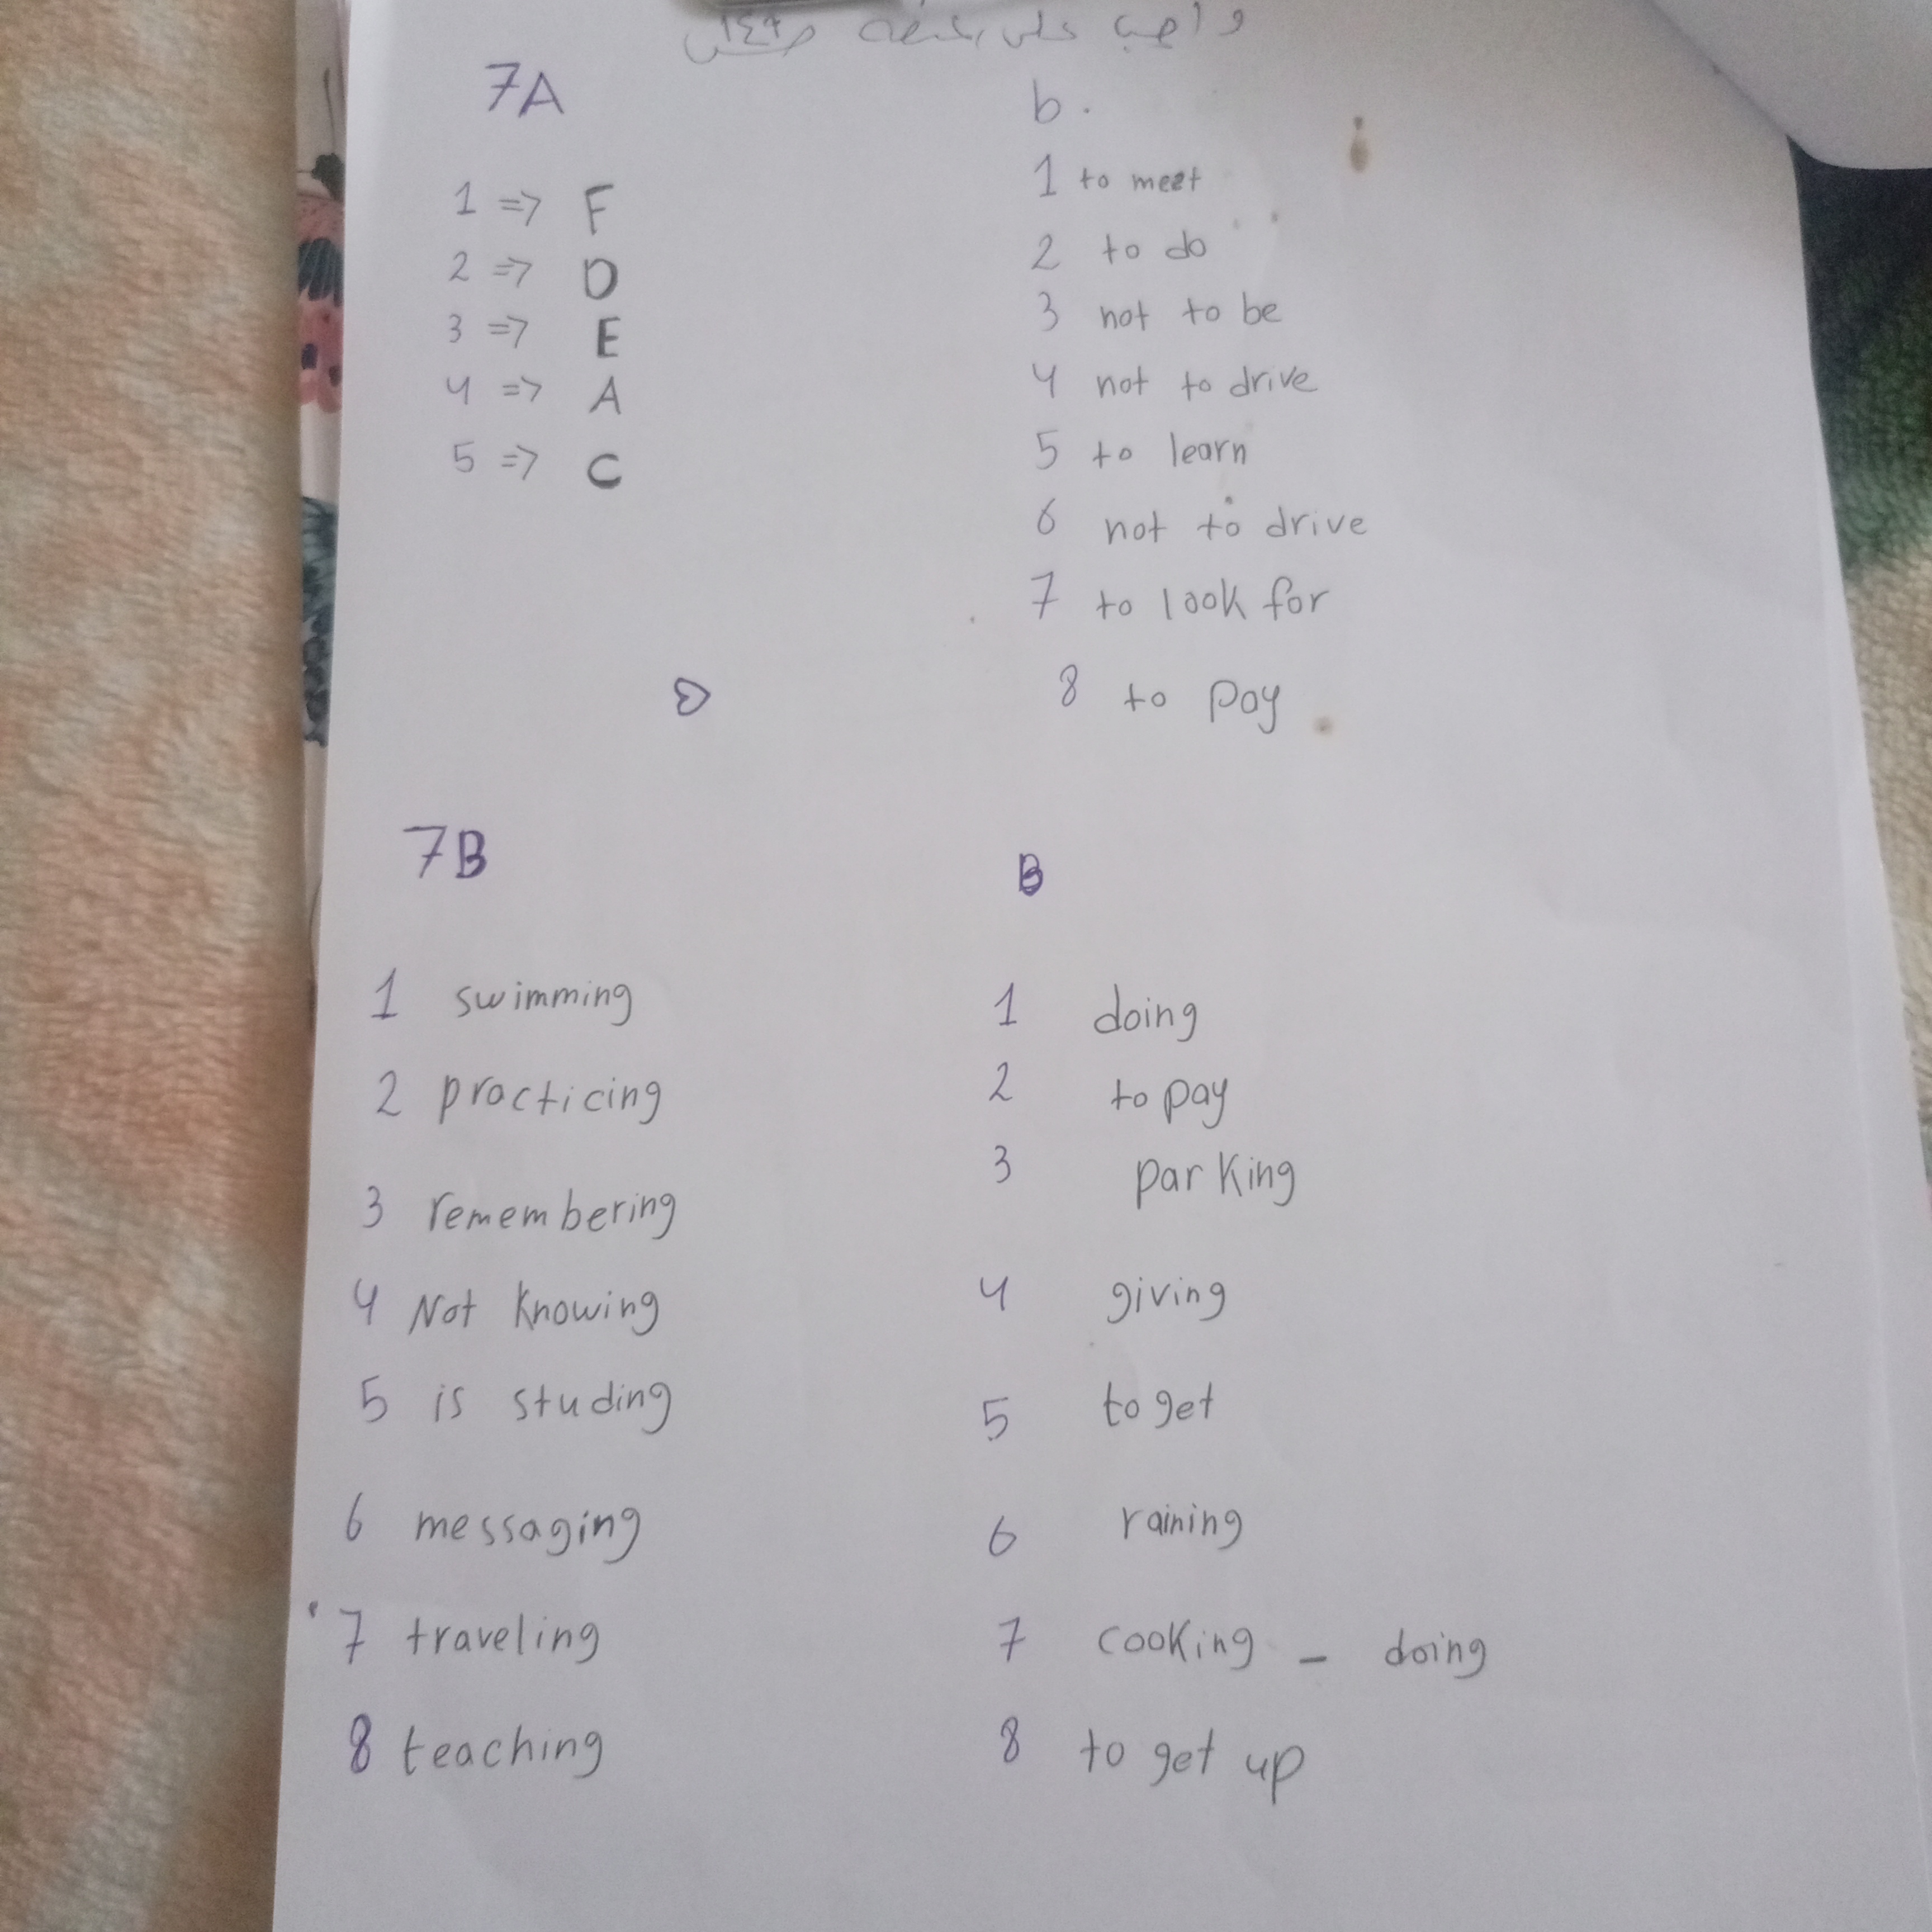 واجب
7A
1 => F
2 => D
3 => E
4 => A
5 => C
b.
1 to meet
2 to do
3 not to be
4 not to drive
5 to learn
6 not to drive
7 to look for
8 to pay
7B
1 swimming
2 practicing
3 remembering
4 Not knowing
5 is studing
6 messaging
7 traveling
8 teaching
B
1 doing
2 to pay
3 parking
4 giving
5 to get
6 raining
7 cooking - doing
8 to get up